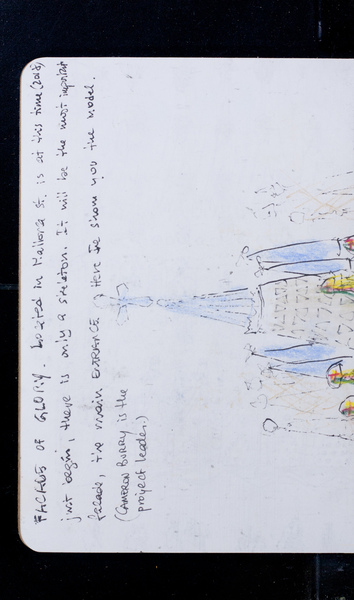 FACADE OF GLORY. Located in Mallorca St. is at this time (2016)
just begin, there is only a skeleton. It will be the most important
facade, the main ENTRANCE. Here be show you the model.
(CAMERON BURRY is the
project leader.)